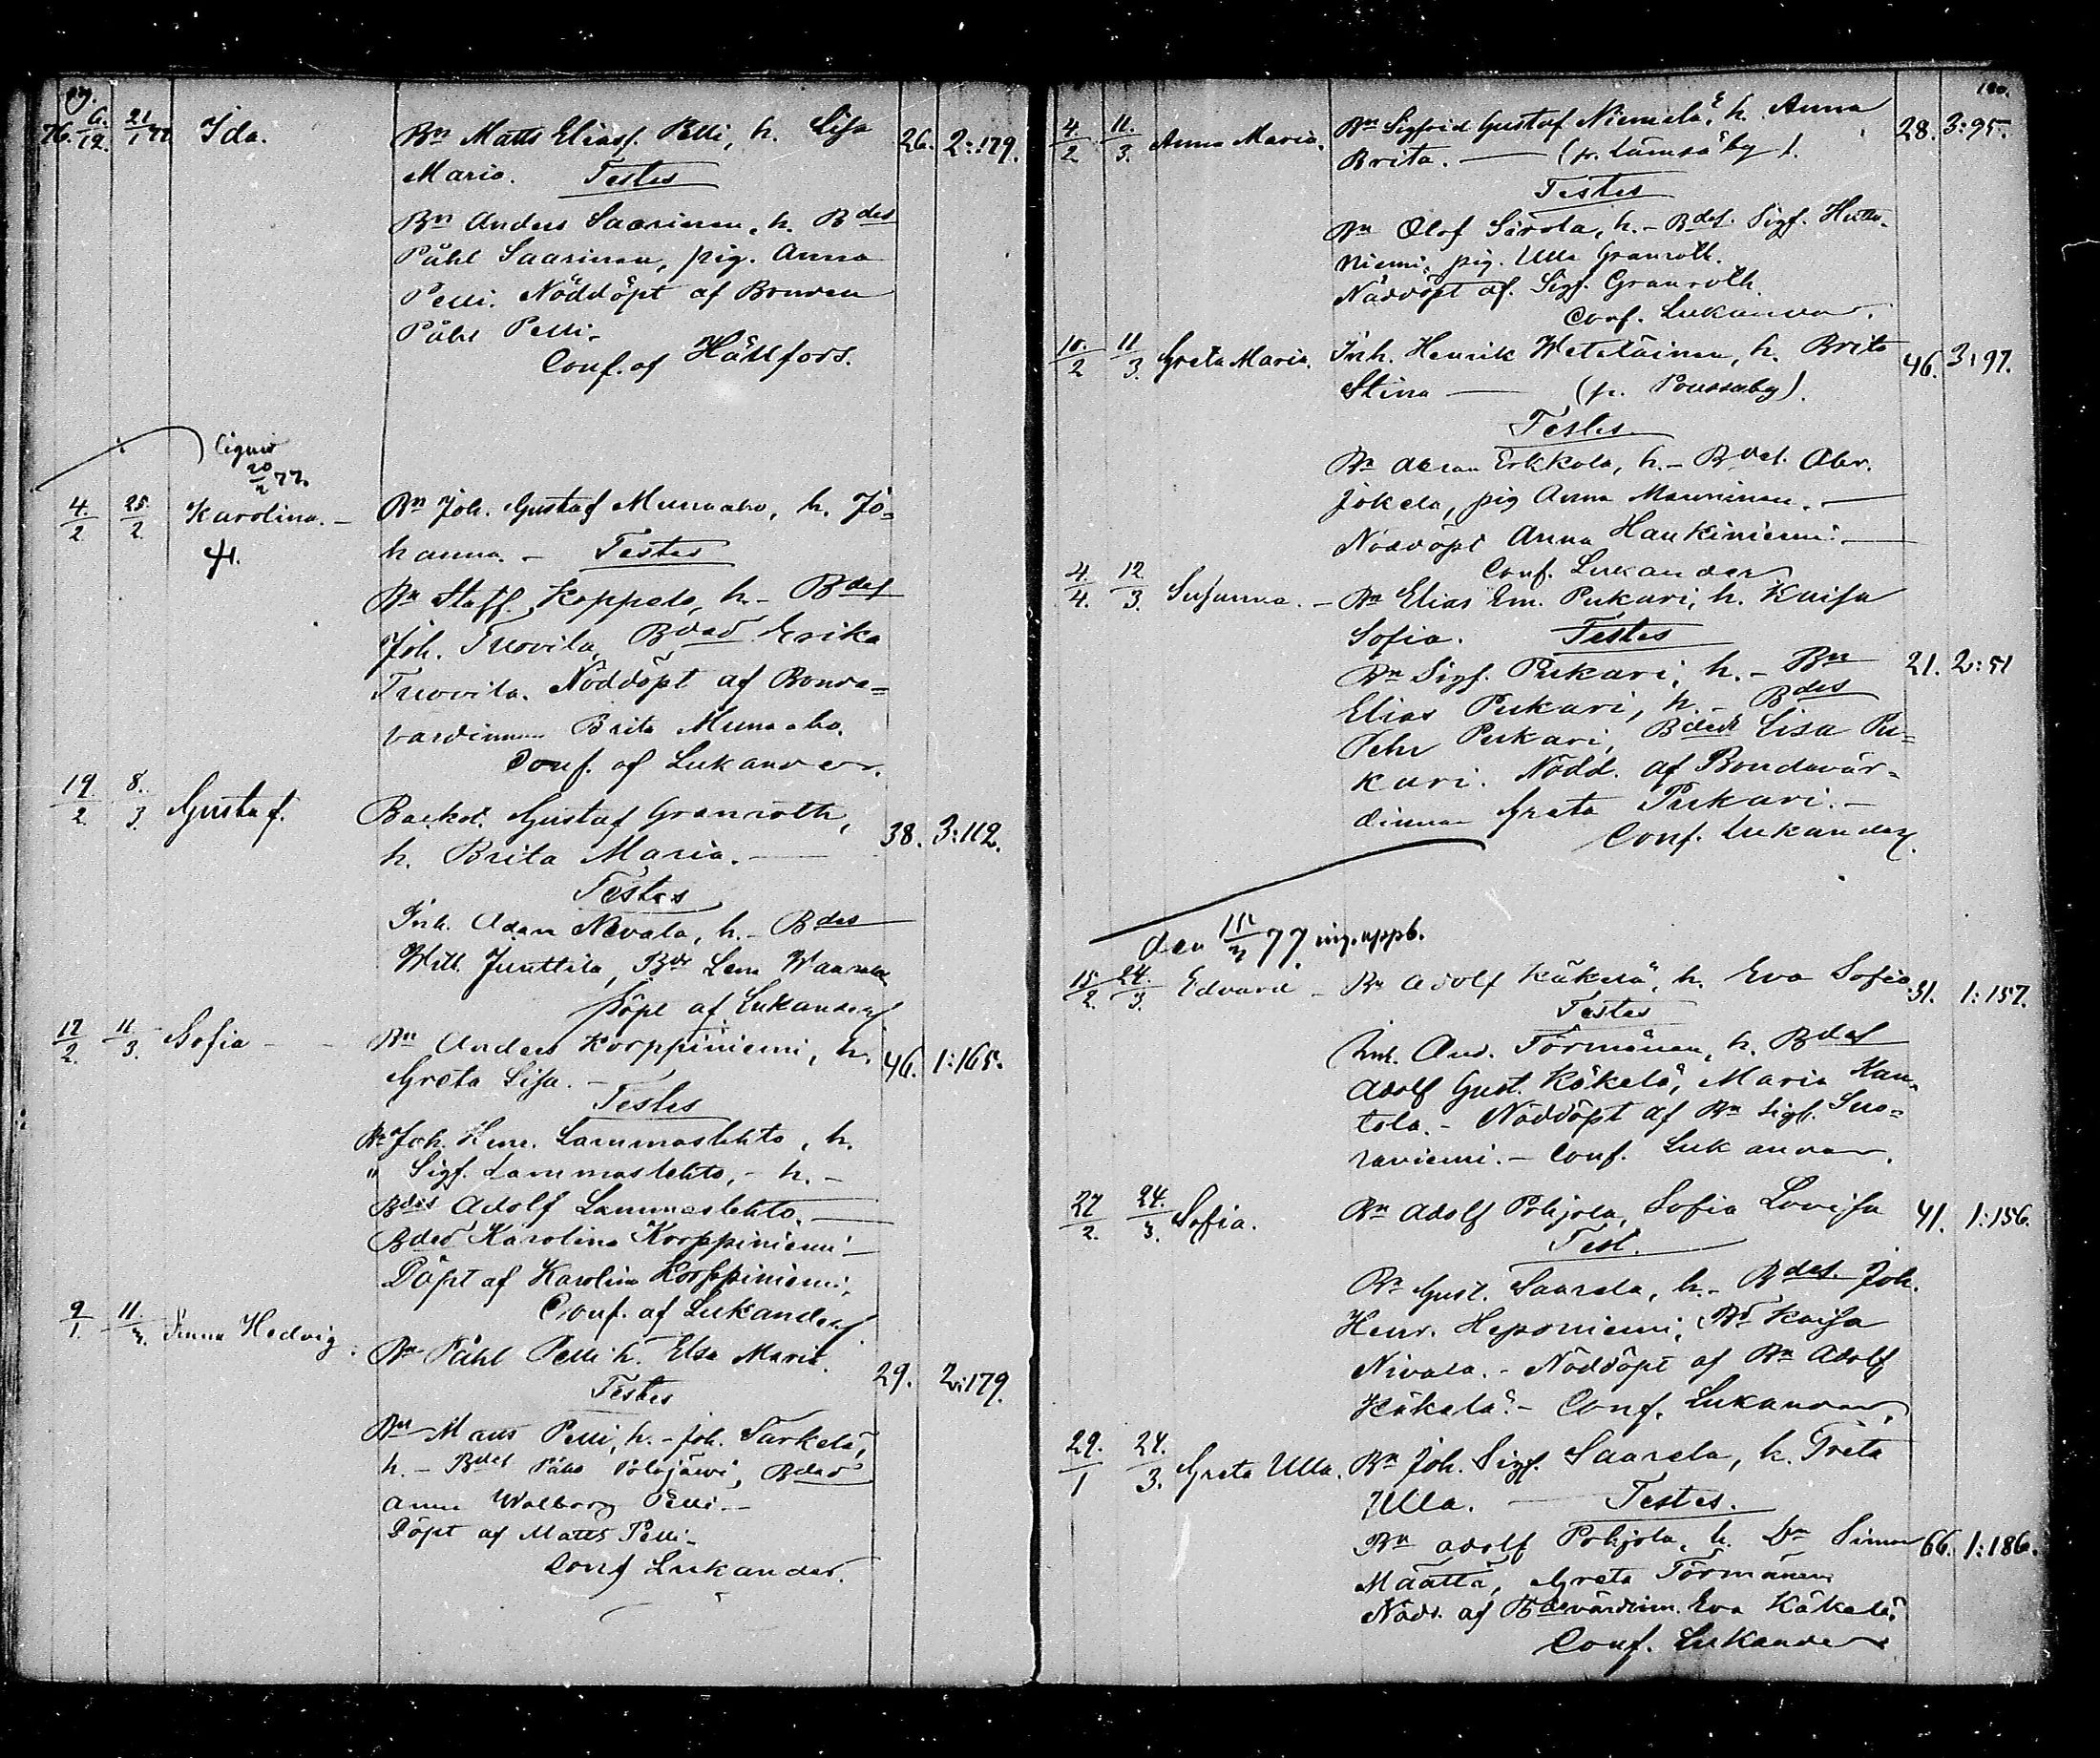 99.
76. 6./12. 21/1 77. Ida. Bn Matts Eliasf. Pelli, h. Lisa 26. 2:179.
Maria. Testes
Bn Anders Saarinen, h. Bdes
Påhl Saarinen, pig. Anna
Pelli. Nöddöpt af Bonden
Påhl Pelli.
Conf. af Hällfors.
20/2 77.
4./2. 25./2. Karolina. - Bn Joh. Gustaf Mursuaho, h. Jo=
hanna. - Testes
Bn Staff. Koppelo, h. - Bdes
Joh. Tuovila, Bded Erika
Tuovila. Nöddöpt af Bonde=
vardinnan Brita
Conf. af Lukander.
19./2. 8./3. Gustaf. Backst. Gustaf Granroth, 38. 3:112.
h. Brita Maria.
Testes
Inh. Adam Nevala, h. - Bdes
Will. Junttila, Lena
Döpt af Lukander
17/2. 11./3. Sofia - - Bn Anders Korppiniemi, h. 46. 1:165.
Greta Lisa. -
Testes
Bn Joh. Henr. Lammaslehto, h.
" Sigf. Lammaslehto, - h. -
Bdes Adolf Lammaslehto.
Bded Karolina Korppiniemi
Döpt af Karolina Korppiniemi,
Conf. af Lukander
9/1. 11./3. Anna Hedvig. Bn Påhl Pelli h. Elsa Maria. 29. 2:179.
Testes
Bn Matts Pelli, h. - Joh. Särkelä,
h. - Bdes Påhl Bded
Anna Walborg Pelli. -
Döpt af Matts Pelli.
Conf Lukander.
100.
4./2 11./3. Anna Maria. Bn Sigfrid Gustaf Niemelä, h. Anna 28. 3:95.
Brita. (fr. Lämsäby).
Testes
Bn Olof Sirola, h. - Bdes. Sigf.
niemi, pig. Ulla Granroth.
Nöddöpt af. Sigf. Granroth.
Conf. Lukander.
10./2 11/3. Greta Maria. Inh. Henrik Weteläinen, h. Brita 46. 3:97.
Stina (fr. Poussuby).
Testes
Bn Erkkola, h. - Bdes. Abr.
Jokela, pig Anna Manninen. -
Nöddöpt Anna Haukiniemi. -
Conf. Lukander
4./4. 12./3. Susanna. - Bn Elias Em. Pukari, h. Kaisa
Sofia. Testes
Bn Sigf. Pukari, h. - Bn 21. 2:51
Elias Pukari, h. - Bdes
Pehr Pukari, Lisa Pu=
kari. Nödd. af Bondevär=
dinnan Greta Pukari. -
Conf. Lukander.
den 15/3 77.
15/2. 24./3. Edvard - Bn Adolf Käkelä, h. Eva Sofia 31. 1:157.
Testes
Inh. And. Törmänen, h. Bdes
Adolf Gust. Käkelä, Maria Kan=
tola. - Nöddöpt af Bn Sigf. Suo=
raniemi. - Conf. Lukander.
27/2. 24./3. Sofia. Bn Adolf Pohjola, Sofia Lovisa 41. 1:156.
Test.
Bn Gust. Saarela, h. - Bdes. Joh.
Henr. Heponiemi, Kaisa
Nivala. - Nöddöpt af Bn Adolf
Käkelä. - Conf. Lukander,
29./1 24./3. Greta Ulla. Bn Joh. Sigf. Saarela, h. Greta
Ulla. Testes.
Bn Adolf Pohjola, h. Simon 66. 1:186.
Määttä, Greta Törmänen
Nödd. af Eva Käkelä.
Conf. Lukander